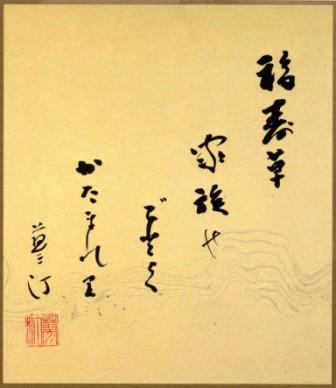 福寿草
家族の
ごとく
かたまれり
蓼汀